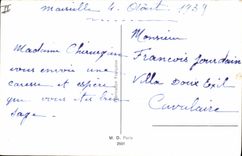 II
Marseille 4 Août 1939
Madame Chirurgien
vous envoie une
caresse et espère
que vous êtes très
sage.
Monsieur
François Jourdain
Villa Doux Exil
Cavalaire
M. D. Paris